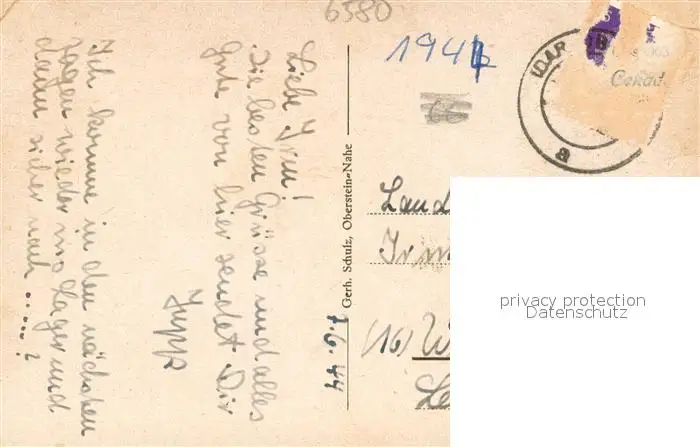 6580
1944
66
IDAR
a
Liebe Irm!
Die besten Grüsse und alles
Gute von hier sendet Dir
Jupp
Ich komme in den nächsten
Tagen wieder ins Lager und
dann sicher nach .....?
7.6.44
Gerh. Schulz, Oberstein-Nahe
Land
Irm
(16) W
Le
privacy protection
Datenschutz